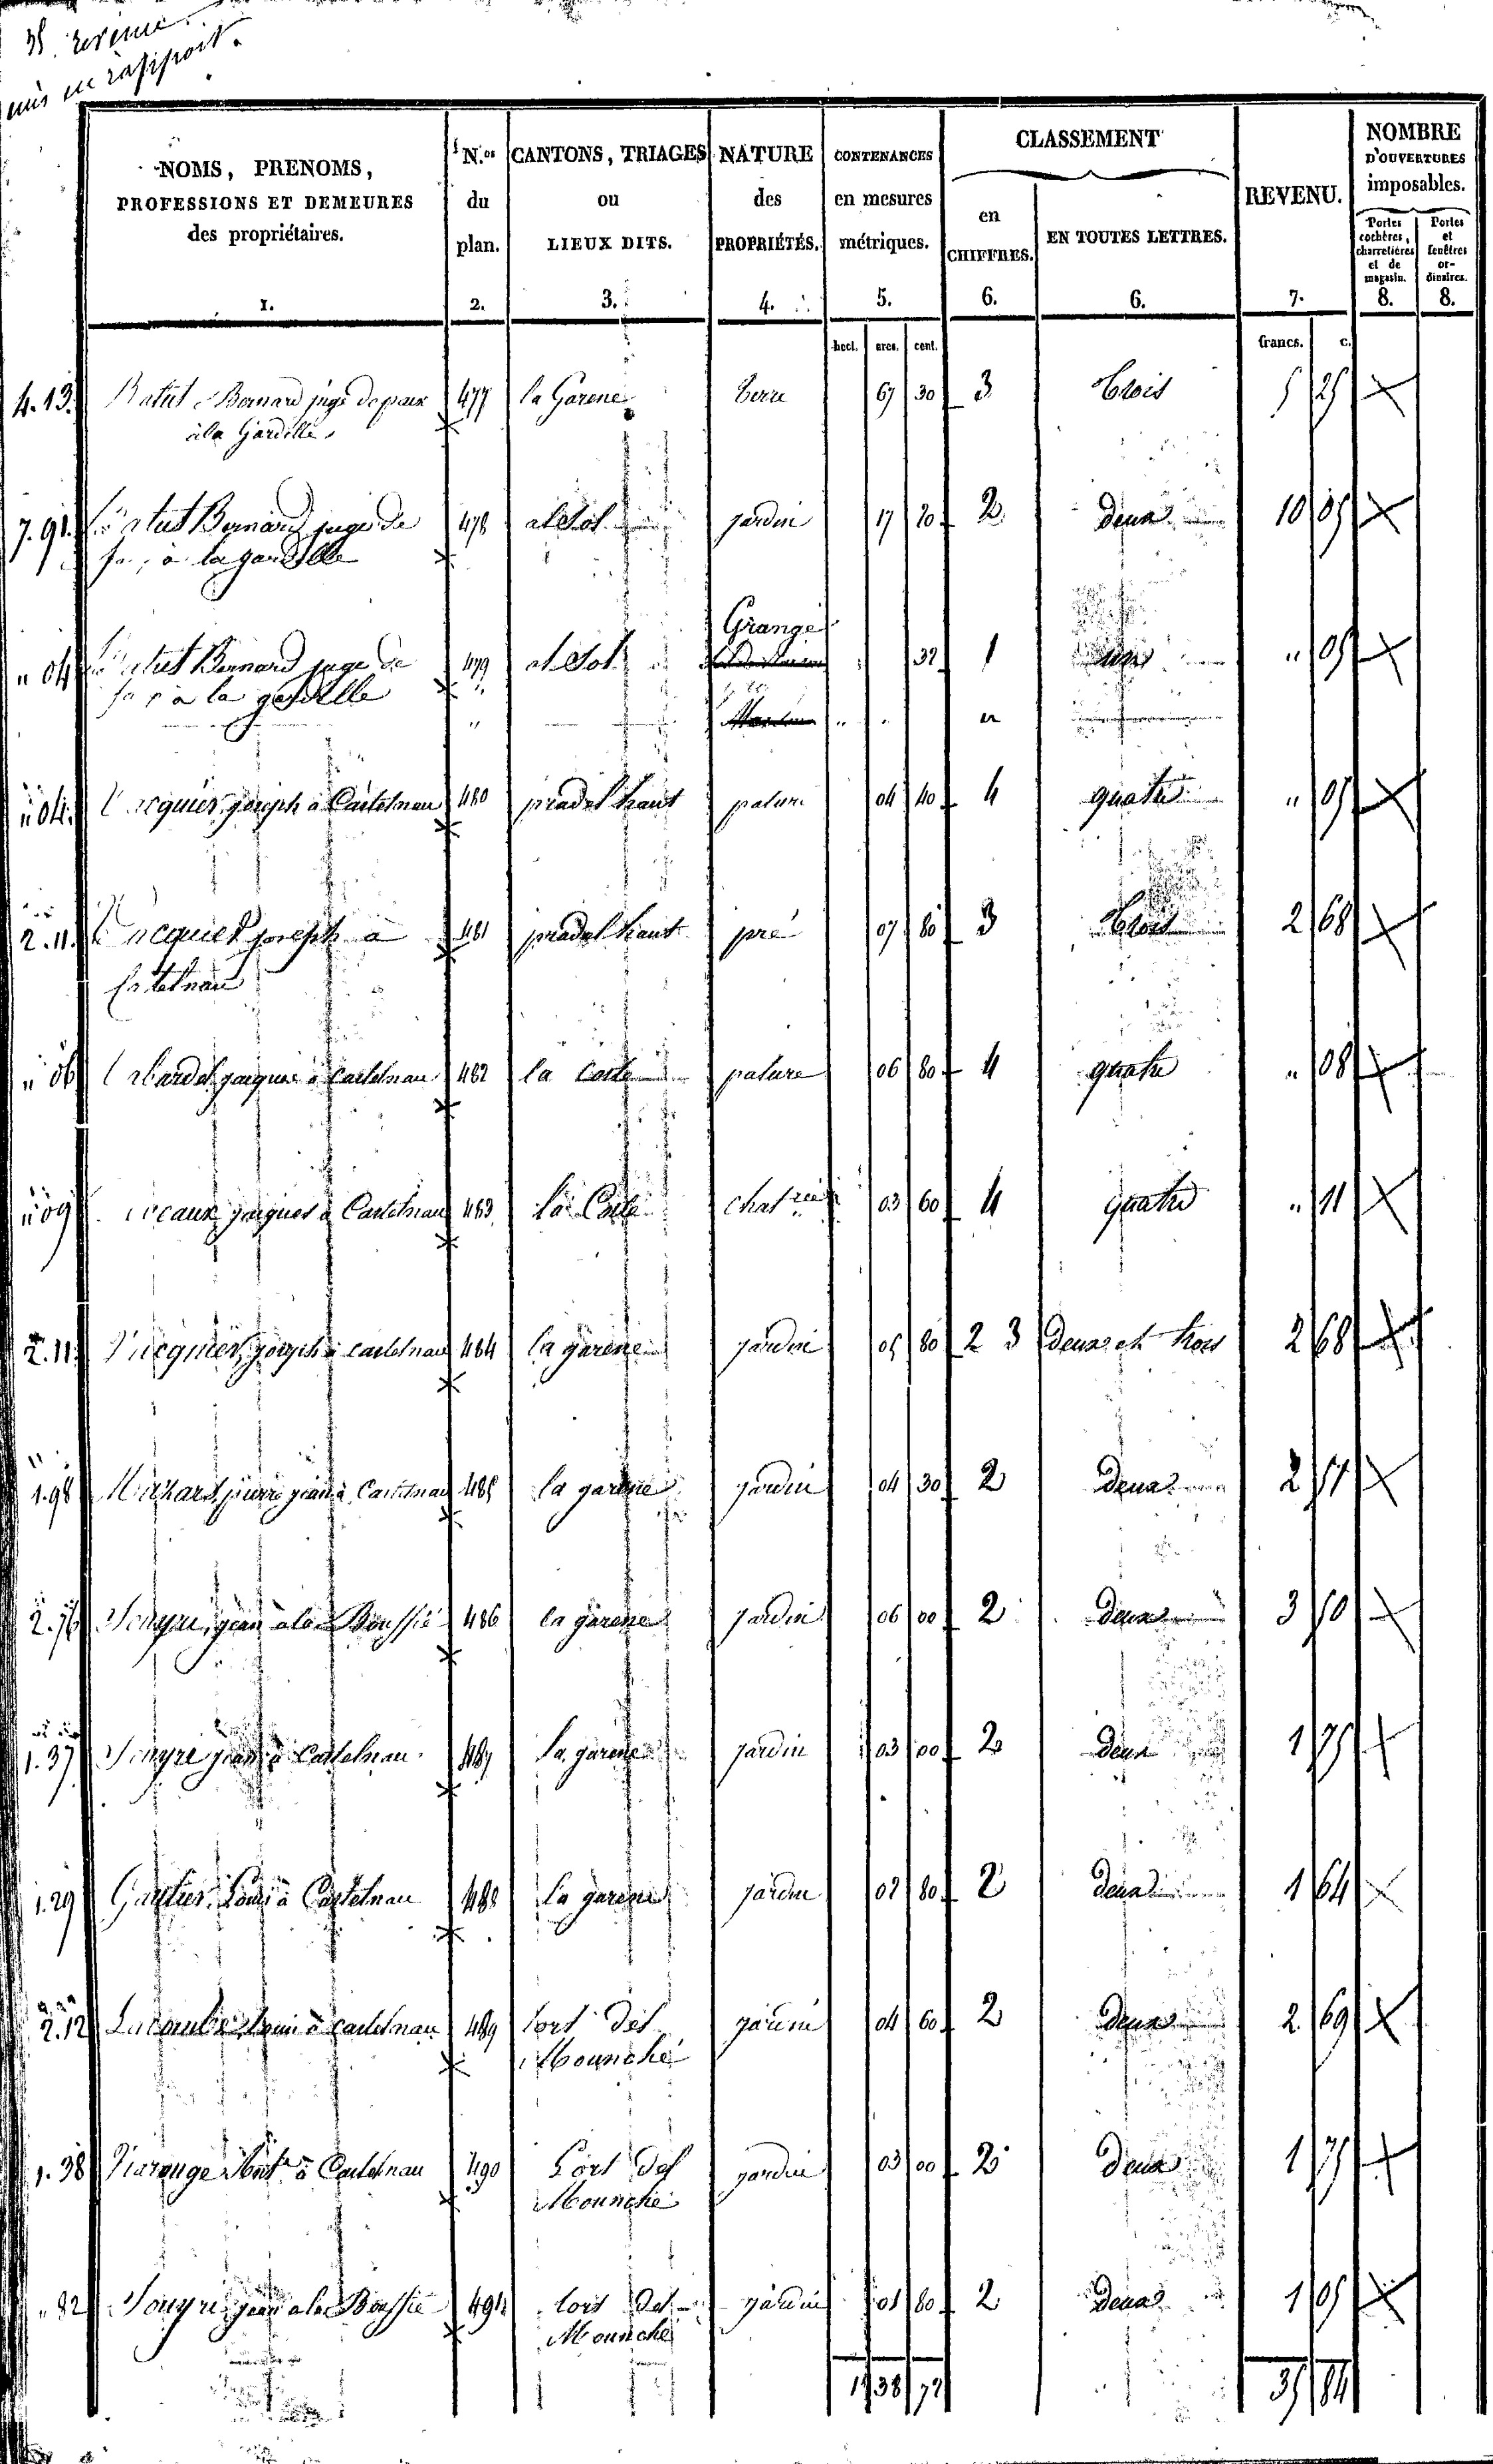 revenu
mis en rapport.
NOMS, PRENOMS,
PROFESSIONS ET DEMEURES
des propriétaires.
1.
N.os
du
plan.
2.
CANTONS, TRIAGES
ou
LIEUX DITS.
3.
NATURE
des
PROPRIÉTÉS.
4.
CONTENANCES
en mesures
métriques.
5.
CLASSEMENT
en
CHIFFRES.
6.
EN TOUTES LETTRES.
6.
REVENU.
7.
NOMBRE
D'OUVERTURES
imposables.
Portes
cochères,
charretières
et de
magasin.
8.
Portes
et
fenêtres
or-
dinaires.
8.
hect. ares. cent. francs. c.
4.13. Batut Bernard juge de paix 477 la Garene terre 67 30 3 trois 5 25
à la Gardelle
7.91. Batut Bernard juge de 478 al Sol jardin 17 20 2 deux 10 05
à la gardelle
Grange
" 04 Batut Bernard juge de 479 al Sol 32 1 " 05
à la gardelle
" 04. joseph à Castelnau 480 pradel haut pature 04 40 4 quatre " 05
2.11. joseph à 481 pradel haut pré 07 80 3 trois 2 68
Castelnau
" 06 jacques à Castelnau 482 la Coste pature 06 80 4 quatre " 08
" 09 jacques à Castelnau 483 la Coste chat.raie 03 60 4 quatre " 11
2.11. joseph à castelnau 484 la garene jardin 05 80 2 3 deux et trois 2 68
1.98 pierre jean à Castelnau 485 la garene jardin 04 30 2 deux 2 51
2.76 Souyri jean à la Boussie 486 la garene jardin 06 00 2 deux 3 50
1.37 Souyri jean à Castelnau 487 la garene jardin 03 00 2 deux 1 75
1.29 Gautier Louis à Castelnau 488 la garene jardin 02 80 2 deux 1 64
2.12 Lacombe Louis à castelnau 489 lort del jardin 04 60 2 deux 2 69
Mounche
1.38 à Castelnau 490 Lort del jardin 03 00 2 deux 1 75
Mounche
" 82 Souyri jean à la Boussie 491 lort del jardin 01 80 2 deux 1 05
Mounche
1 38 72 35 84